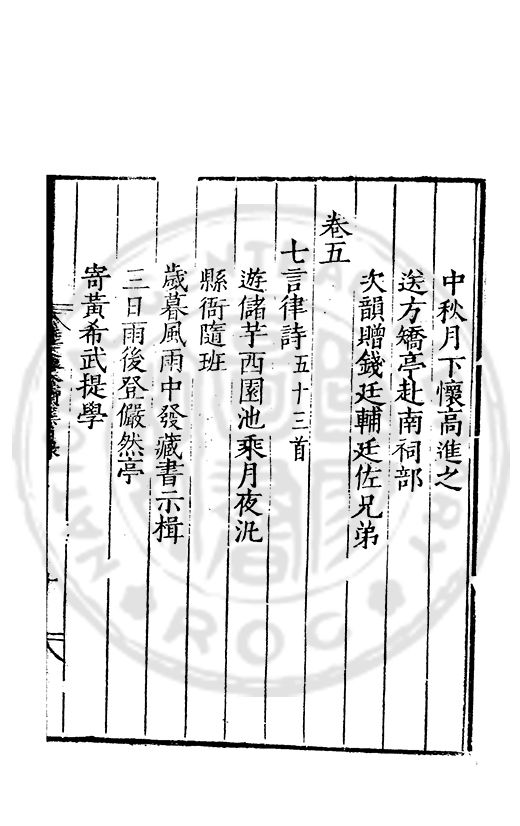 中秋月下懷高進之
送方矯亭赴南祠部
次韻贈錢廷輔廷佐兄弟
卷五
七言律詩五十三首
遊儲芋西園池乘月夜汎
縣衙隨班
歲暮風雨中發藏書示楫
三日雨後登儼然亭
寄黃希武提學